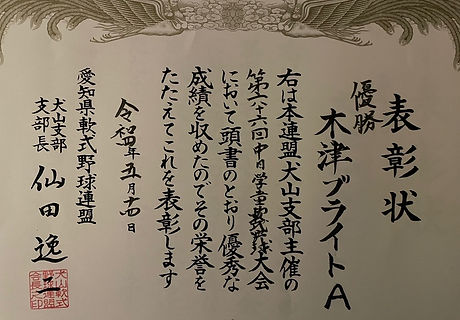 表彰状
優勝
木津ブライトA
右は本連盟犬山支部主催の
第六十六回中日学童軟式野球大会
において頭書のとおり優秀な
成績を収めたのでその栄誉を
たたえてこれを表彰します
令和四年五月十四日
愛知県軟式野球連盟
犬山支部
支部長
仙田逸二